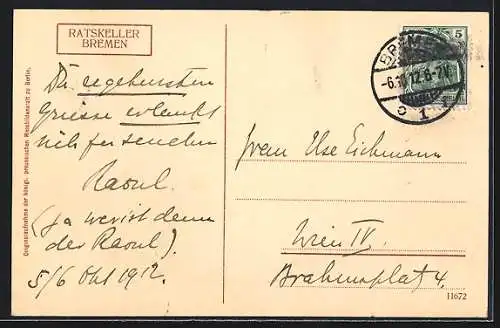 RATSKELLER
BREMEN
Die ergebensten
Grüsse erlaubt
sich zu senden
Raoul.
(ja wer ist denn
der Raoul).
5/6 Okt 1912.
Originalaufnahme der königl. preussischen Messbildanstalt zu Berlin.
BREMEN
5
-6.10.12.6-7V.
C 1
Ilse Eichmann
Wien IV.
Brahmsplatz 4.
11672